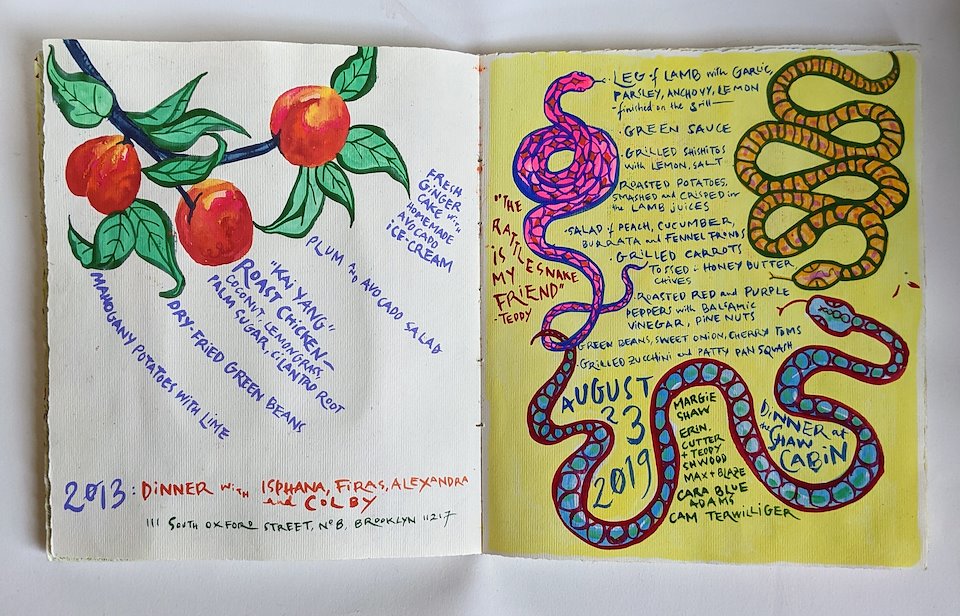 MAHOGANY POTATOES WITH LIME
DRY-FRIED GREEN BEANS
"KAI YANG"
ROAST CHICKEN—
COCONUT, LEMONGRASS
PALM SUGAR, CILANTRO ROOT
PLUM AND AVOCADO SALAD
FRESH
GINGER
CAKE with
HOMEMADE
AVOCADO
ICE-CREAM
2013: DINNER WITH ISPHANA, FIRAS, ALEXANDRA
and COLBY
111 SOUTH OXFORD STREET, No 8, BROOKLYN 11217
"THE
RATTLESNAKE
IS
MY
FRIEND"
-TEDDY
· LEG of LAMB with GARLIC,
PARSLEY, ANCHOVY, LEMON
-finished on the grill—
· GREEN SAUCE
· GRILLED SHISHITOS
WITH LEMON, SALT
· ROASTED POTATOES,
SMASHED and CRISPED in
the LAMB JUICES
· SALAD of PEACH, CUCUMBER,
BURRATA and FENNEL FRONDS
· GRILLED CARROTS
TOSSED: HONEY BUTTER,
CHIVES
· ROASTED RED and PURPLE
PEPPERS with BALSAMIC
VINEGAR, PINE NUTS
GREEN BEANS, SWEET ONION, CHERRY TOMS
· GRILLED ZUCCHINI and PATTY PAN SQUASH
AUGUST
33
2019
MARGIE
SHAW
ERIN,
CUTTER
+ TEDDY
SHWOOD
MAX + BLAZE
CARA BLUE
ADAMS
CAM TERWILLIGER
DINNER at
the SHAW
CABIN